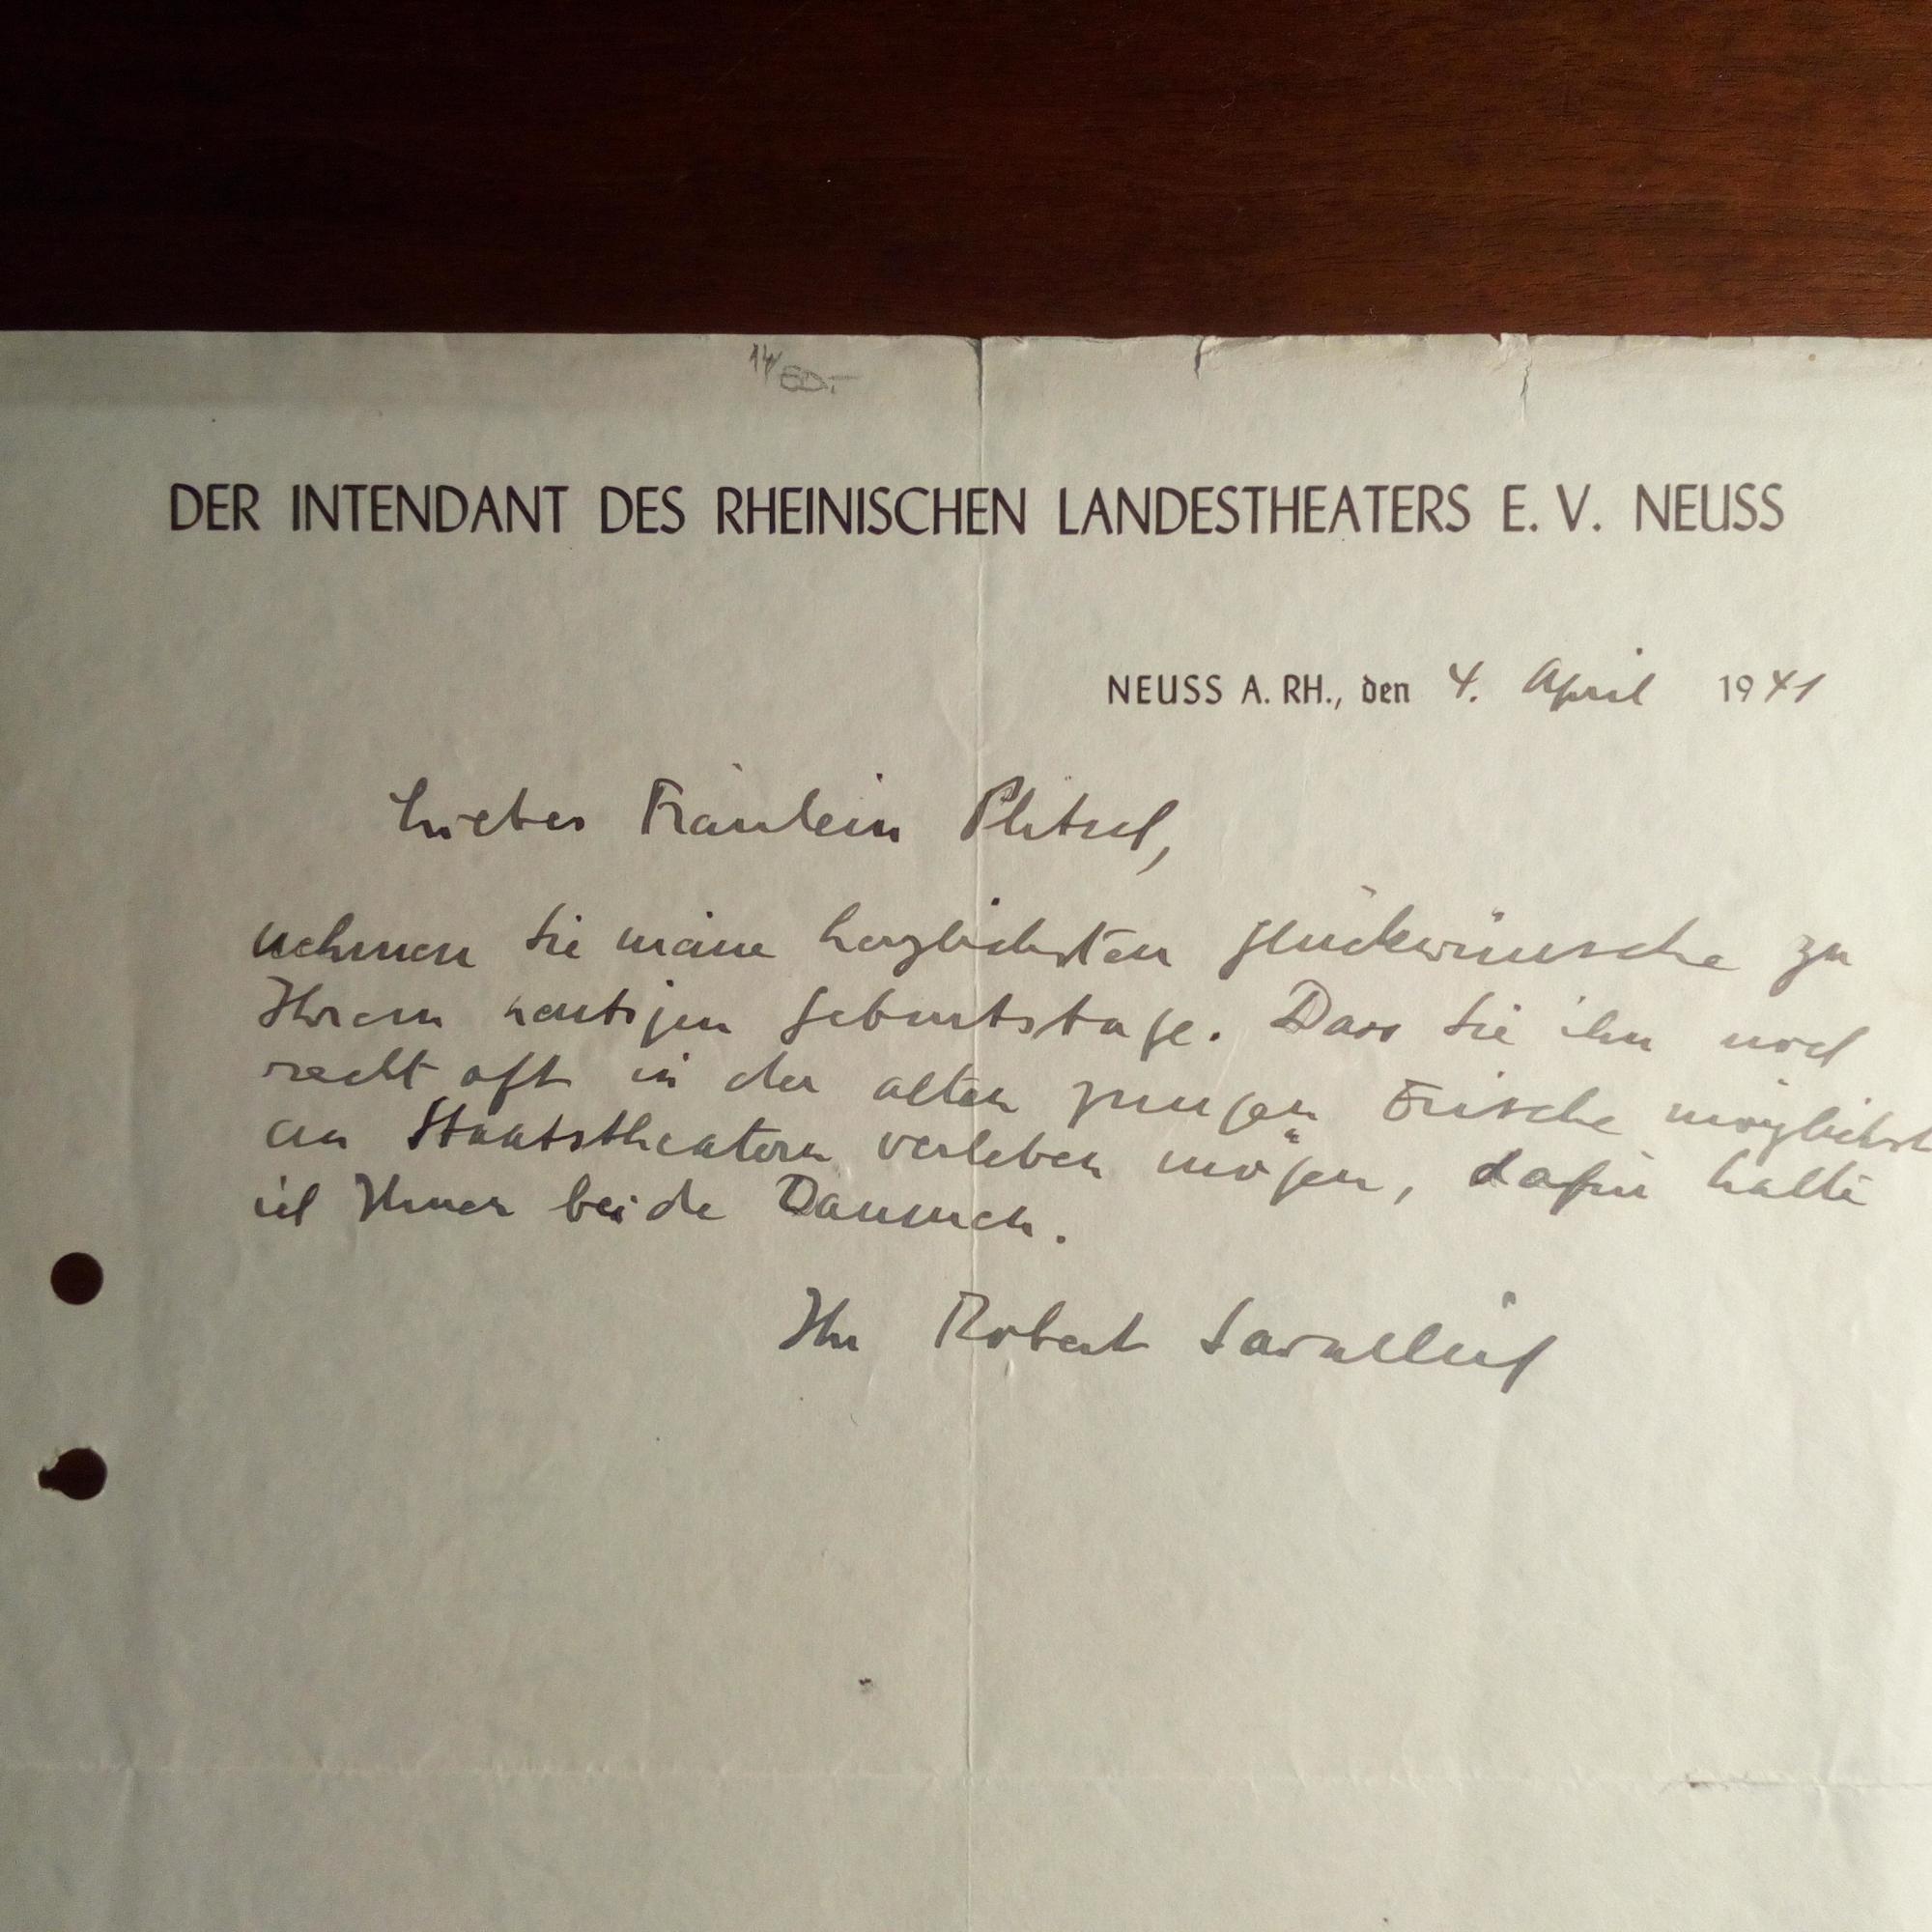 14/60.-
DER INTENDANT DES RHEINISCHEN LANDESTHEATERS E. V. NEUSS
NEUSS A. RH., den 4. April 1941
Liebes Fräulein
nehmen Sie meine herzlichsten Glückwünsche zu
Ihrem heutigen Geburtstage. Dass Sie ihn noch
recht oft in der alten jungen Frische möglichst
an Staatstheatern verleben mögen, dafür halte
ich Ihnen beide Daumen.
Ihr Robert